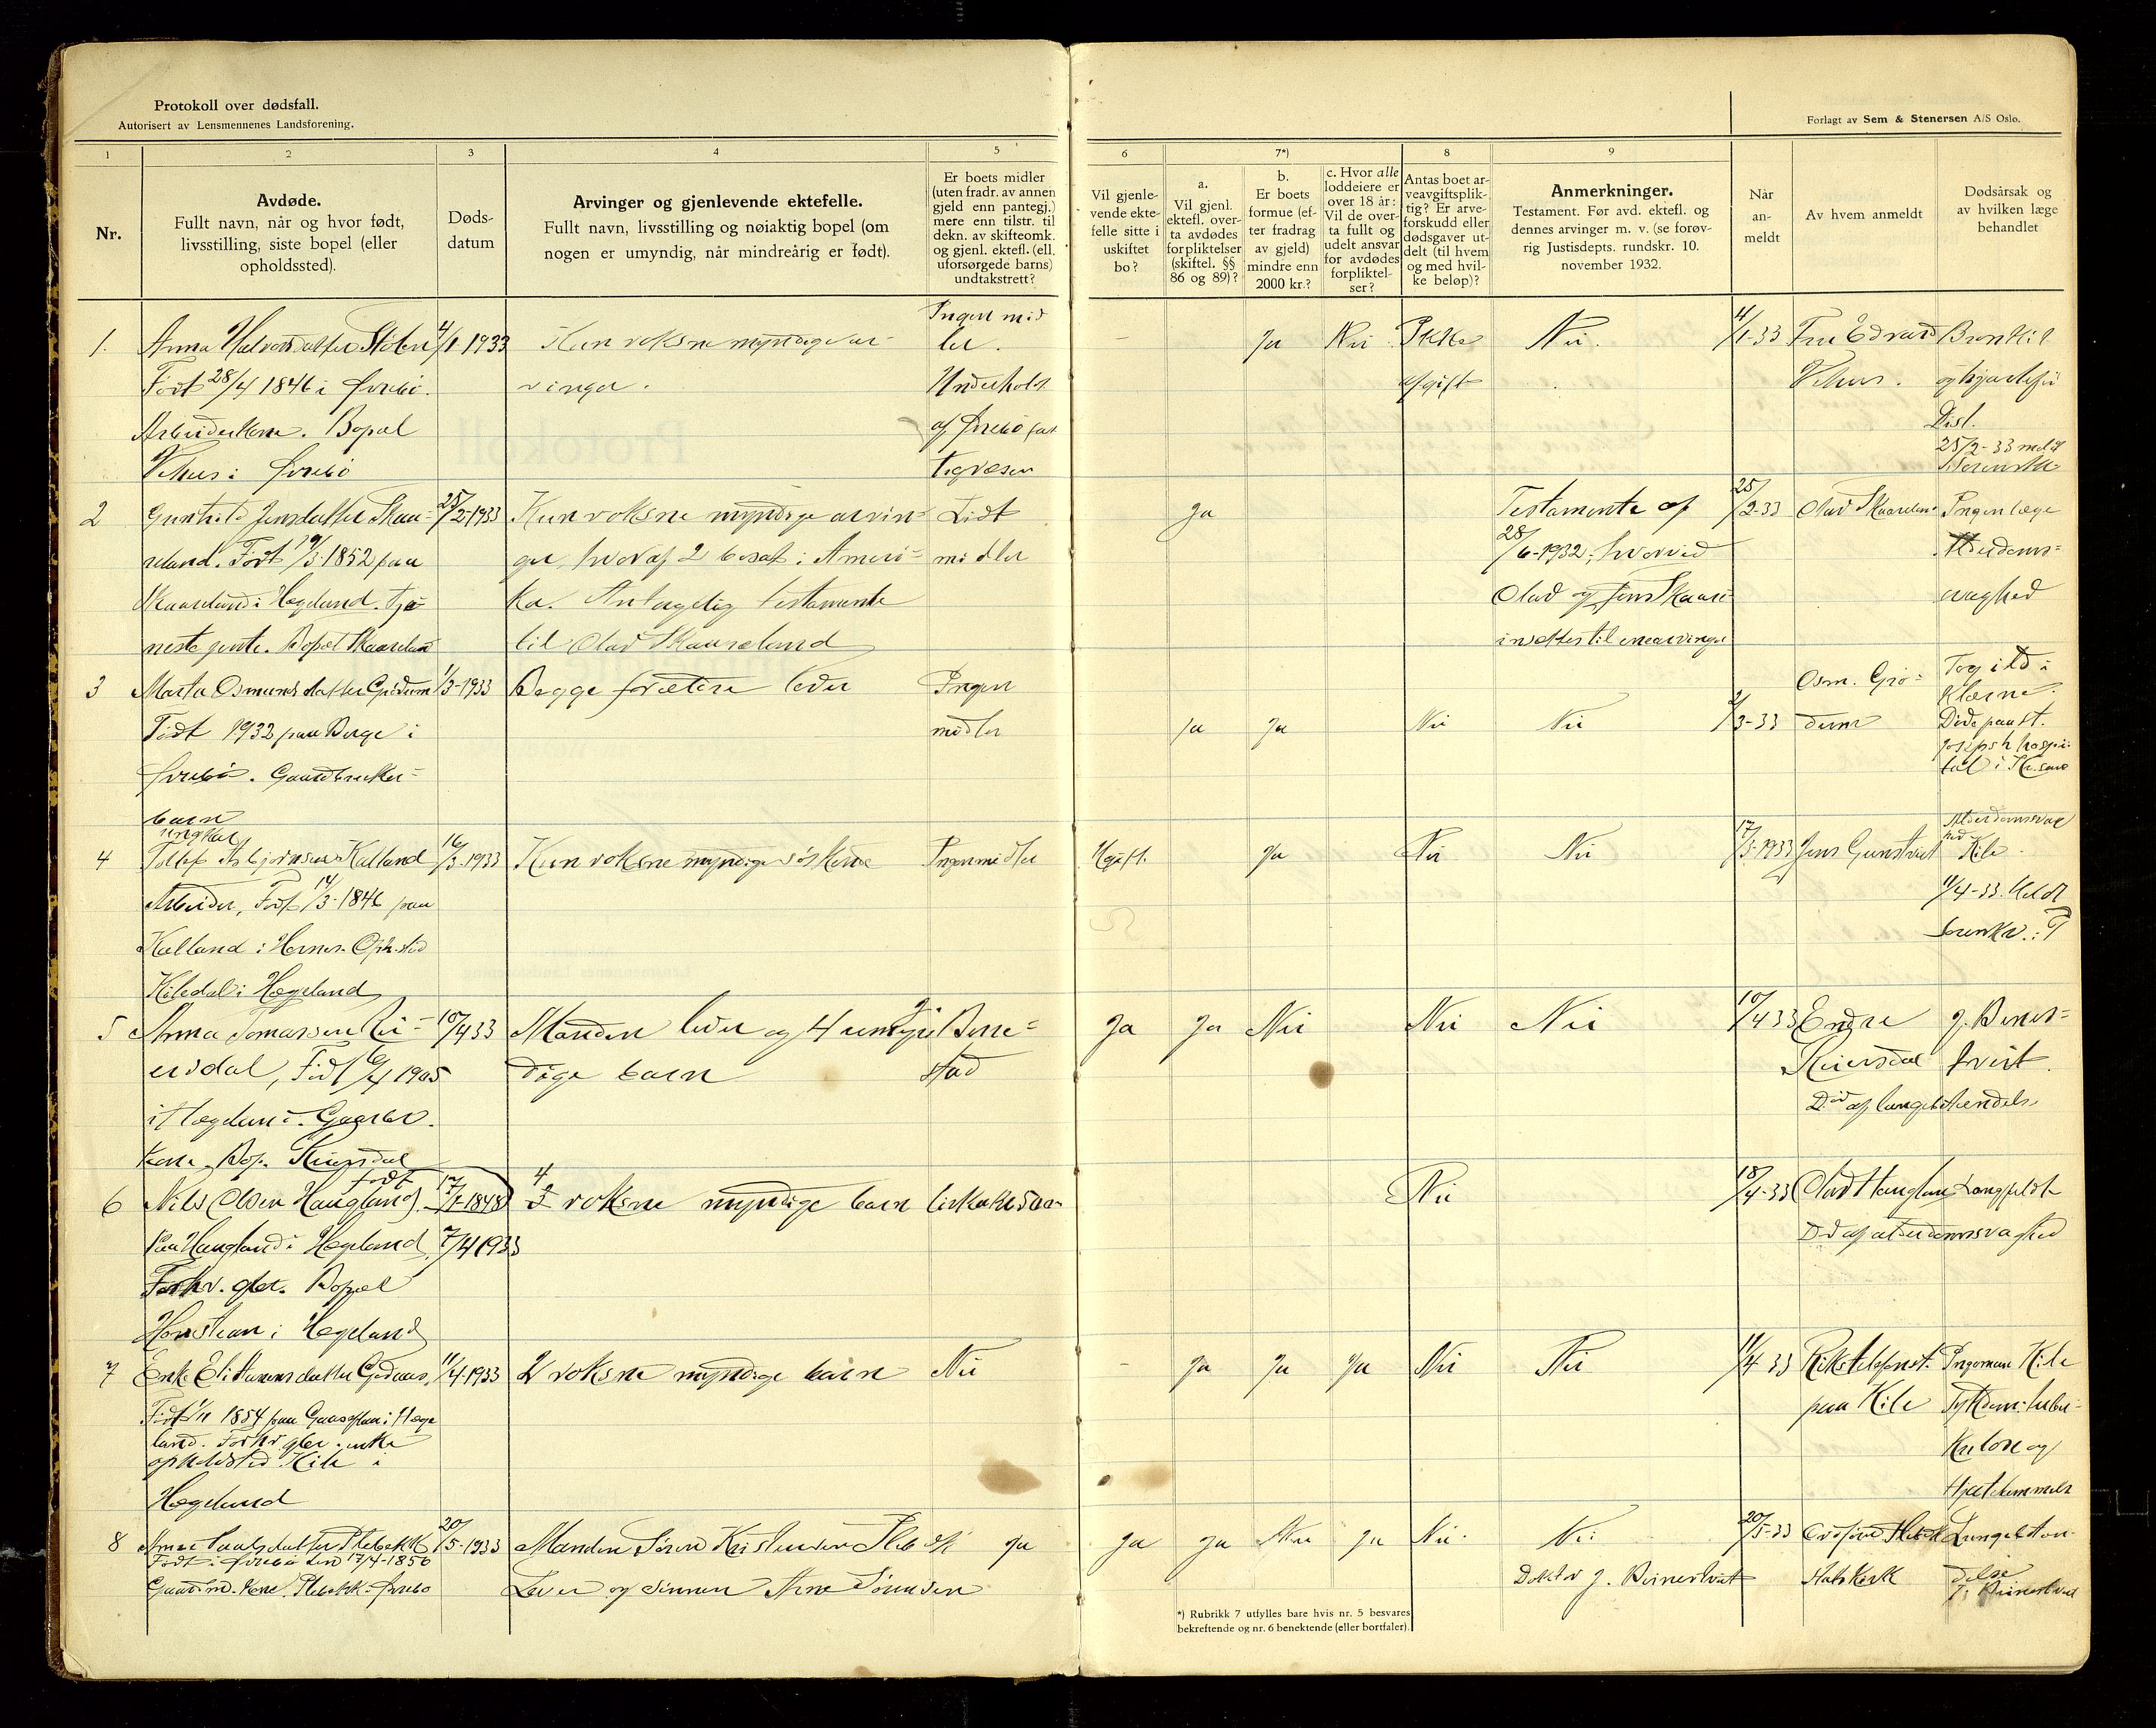 Protokoll over dødsfall.
Autorisert av Lensmennenes Landsforening.
Forlagt av Sem & Stenersen A/S Oslo.
1
2
3
4
5
6
7*)
8
9
Nr.
Avdøde.
Fullt navn, når og hvor født,
livsstilling, siste bopel (eller
opholdssted).
Døds-
datum
Arvinger og gjenlevende ektefelle.
Fullt navn, livsstilling og nøiaktig bopel (om
nogen er umyndig, når mindreårig er født).
Er boets midler
(uten fradr. av annen
gjeld enn pantegj.)
mere enn tilstr. til
dekn. av skifteomk.
og gjenl. ektefl. (ell.
uforsørgede barns)
undtakstrett?
Vil gjenle-
vende ekte-
felle sitte i
uskiftet
bo?
a.
Vil gjenl.
ektefl. over-
ta avdødes
forpliktelser
(skiftel. §§
86 og 89)?
b.
Er boets
formue (ef-
ter fradrag
av gjeld)
mindre enn
2000 kr.?
c. Hvor alle
loddeiere er
over 18 år:
Vil de over-
ta fullt og
udelt ansvar
for avdødes
forpliktel-
ser?
Antas boet ar-
veavgiftsplik-
tig? Er arve-
forskudd eller
dødsgaver ut-
delt (til hvem
og med hvil-
ke beløp)?
Anmerkninger.
Testament. Før avd. ektefl. og
dennes arvinger m. v. (se forøv-
rig Justisdepts. rundskr. 10.
november 1932.
Når
an-
meldt
Av hvem anmeldt
Dødsårsak og
av hvilken læge
behandlet
1.
Anna Halvorsdatter
Født 28/4 1846 i Øvrebø.
Arbeiderkone. Bopæl
Vehus i Øvrebø
4/1-1933
Kun voksne myndige ar-
vinger.
Ingen mid
ler.
Underholdt
af Øvrebø fat
tigvæsen
–
Ja
Nei
Ikke
afgift
Nei.
4/1-33
Fru Edvard
Vehus.
Bronkit
og hjertefeil
Dist.
25/2-33 meldt
2
Gunhild Jensdatter Skaa-
reland. Født 19/3-1852 paa
Skaareland i Hægeland. Tje-
nestejente. Bopæl Skaareland
25/2-1933
Kun voksne myndige arvin-
ger, hvoraf 2 bosat i Ameri-
ka. Antagelig testamente
til Olav Skaareland
Lidt
midler
Ja
Testamente af
28/6-1932, hvorved
Olav og Jens Skaare
indsettes til enearvinger
25/2-33
Olav Skaareland
Ingen læge
Alderdoms-
svaghed
3
Marta Osmundsdatter Grødum
Født 1932 paa Berge i
Øvrebø. Gaardbruker-
barn
1/3-1933
Begge forældre lever
Ingen
midler
Ja
Ja
Nei
Nei
2/3-33
Osm. Grø-
dum
Tog ild i
klærne.
Døde paa St.
Josephs hospi-
tal i Kr.sand
4
ungkar
Tollef Asbjørnsen Kalland
Arbeider, Født 14/3-1846 paa
Kalland i Hornes. Oph.sted
Kiledal i Hægeland
16/3-1933
Kun voksne myndige søskende
Ingen midler
Ugift.
Ja
Nei
Nei
17/3-1933
Jens Gunstveit
Alderdomssvag
hed
Kile.
11/4-33. Meldt
5
Anna Tomassen Rei-
ersdal, Født 6/4 1905
i Hægeland. Gaardbr.
kone. Bop. Reiersdal
10/4 33
Manden lever og 4 umyn
dige barn
Bene-
stad
Ja
Ja
Nei
Nei
Nei
10/4 33
Endre
Reiersdal
J. Beines-
tveit.
Død af lungebetændelse
6
Nils Olsen Haugland. født 17/1-1848
Paa Haugland i Hægeland
Forhv. gbr. Bopæl
i Hægeland
7/4 1933
4 voksne myndige barn
Nei
18/4-33
Olav Haugland
Langfeldt
Død af alderdomssvaghed
7
Enke Eli
Født 1/11 1854 paa i Hæge
land. Forhv gbr. enke
opholdsted Kile i
Hægeland
11/4-1933
2 voksne myndige barn
Nei
–
Ja
Ja
Ja
Nei
Nei
11/4 33
Rikstelefonst.
paa Kile
Ingemar Kile
Sykdom: tuber-
kulose og
8
Stebekk
Født i Øvrebø den 17/4-1856
Gaardbr. kone. Stebekk. Øvrebø
20/5-1933
Manden Søren Kristensen Stebekk
Lever og sønnen Arne Sørensen
Ja
Ja
Ja
Nei
Ja
Nei
Nei
Doktor J. Beinestveit
20/5-33
Stebekk
Lungebetæn-
delse
J. Beinestveit
*) Rubrikk 7 utfylles bare hvis nr. 5 besvares
bekreftende og nr. 6 benektende (eller bortfaler).